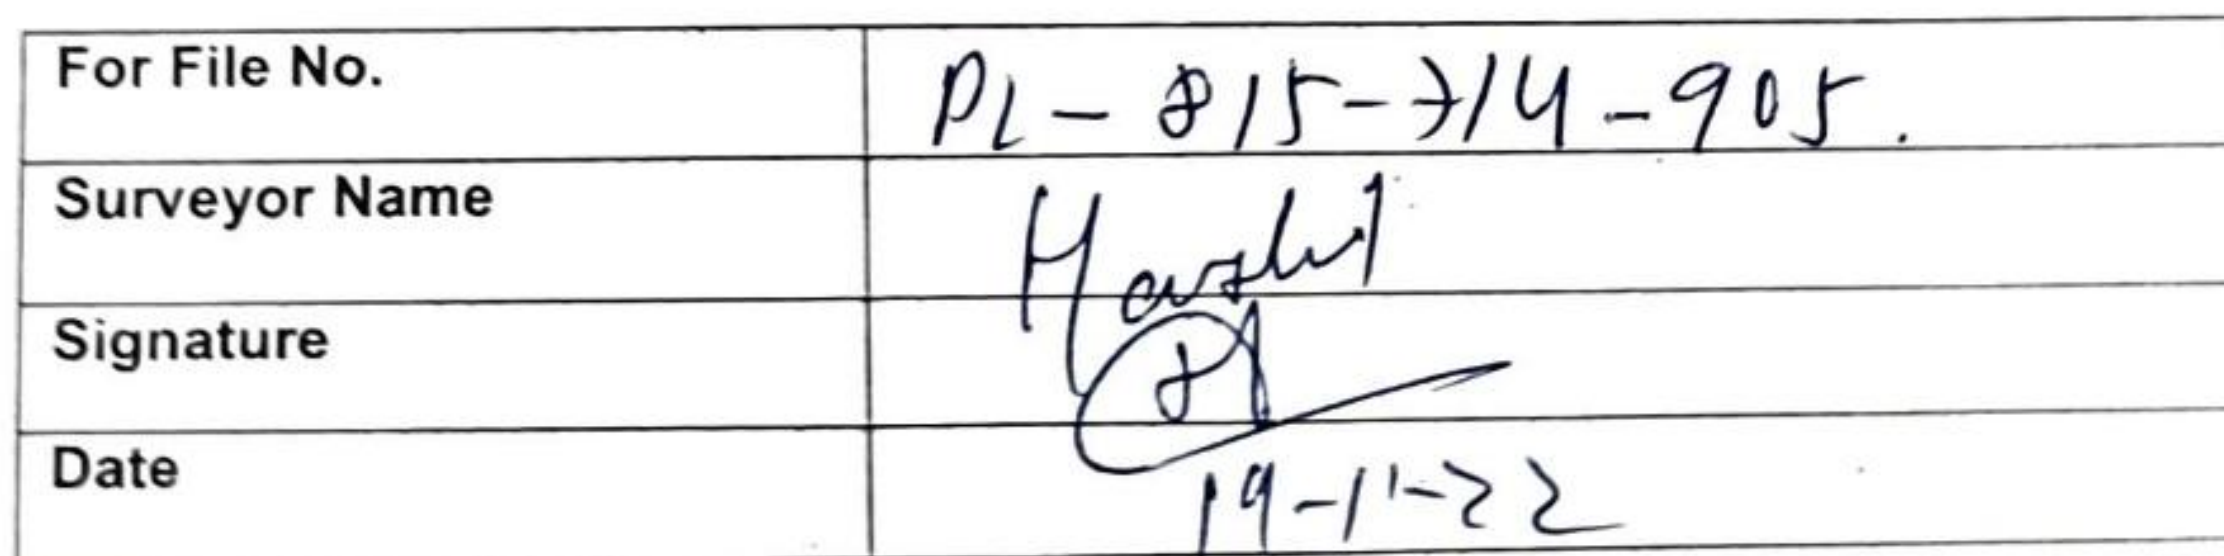 For File No. PL - 815-714-905.
Surveyor Name Harshit
Signature
Date 19-11-22